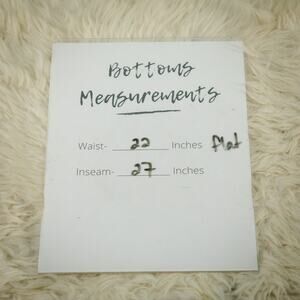 Bottoms
Measurements
Waist- 22 Inches flat
Inseam- 27 Inches